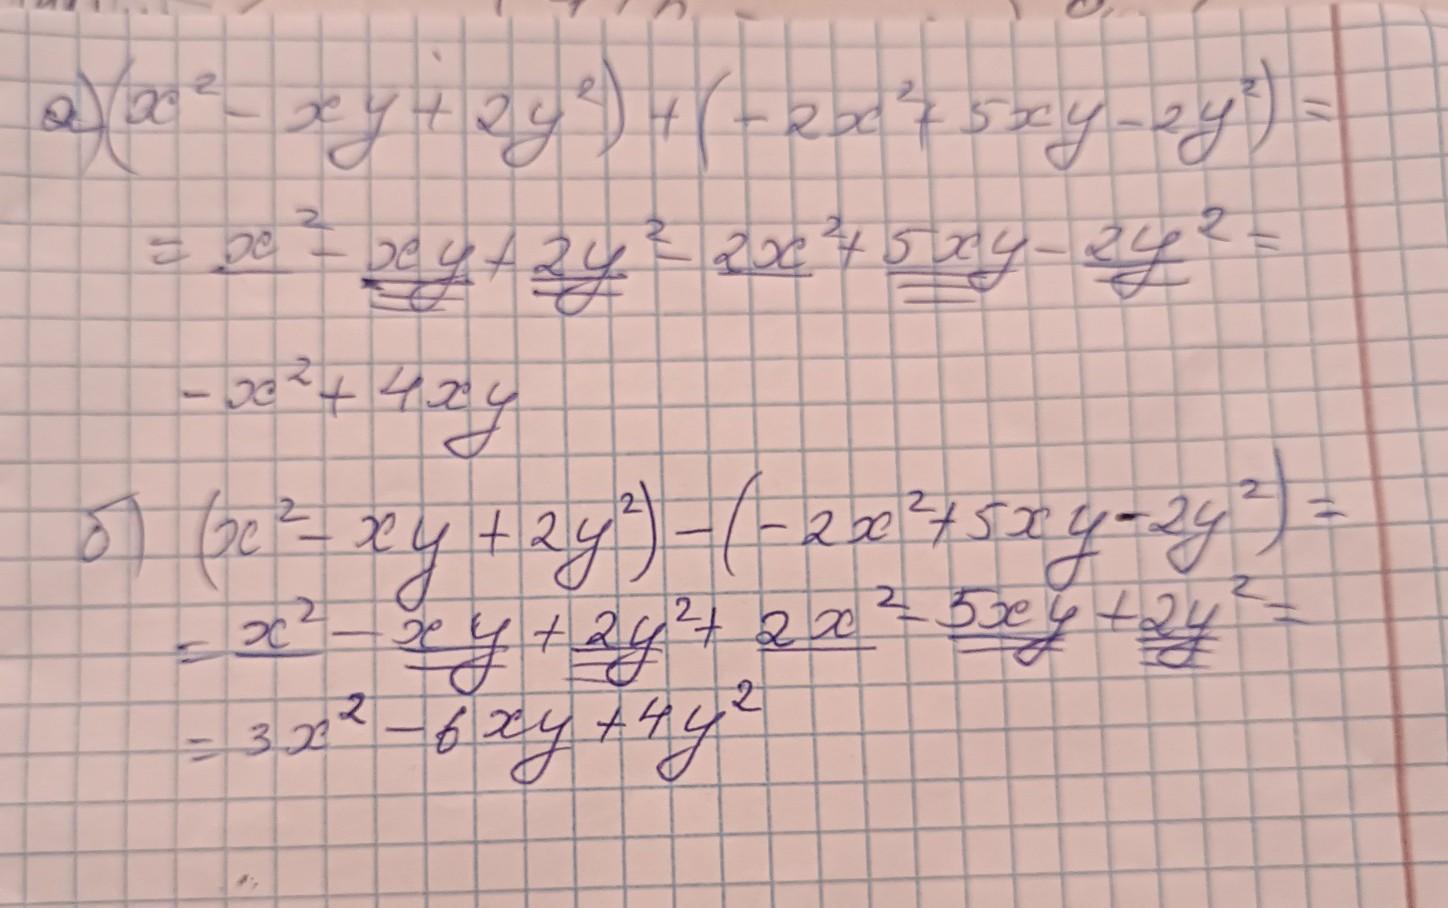 а) (x² - xy + 2y²) + (-2x² + 5xy - 2y²) =
= x² - xy + 2y² - 2x² + 5xy - 2y² =
-x² + 4xy
б) (x² - xy + 2y²) - (-2x² + 5xy - 2y²) =
= x² - xy + 2y² + 2x² - 5xy + 2y² =
= 3x² - 6xy + 4y²